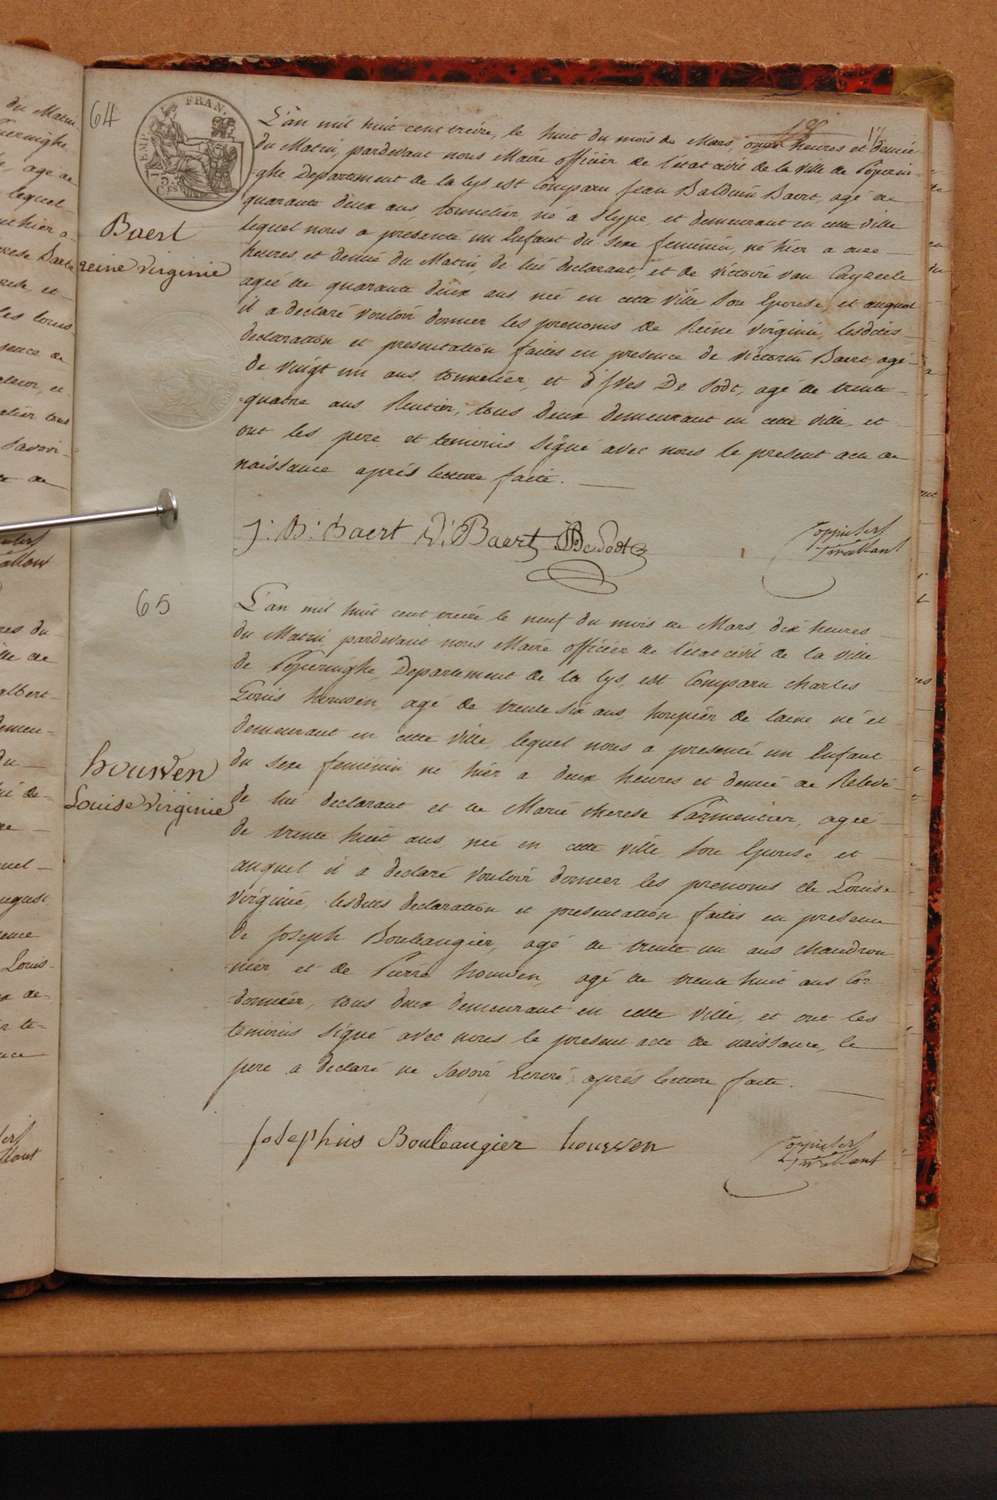 64
EMP. FRAN.
17
L'an mil huit cent treize, le huit du mois de Mars, onze heures et demie
du Matin, pardevant nous Maire officier de l'etat civil de la Ville de Poperin-
ghe Departement de la Lys est Comparu Jean Balduin Baert, agé de
quarante deux ans, tonnelier, né a Slype, et demeurant en cette ville
lequel nous a presenté un Enfant du sexe feminin, né hier a onze
heures et demie du Matin, de lui declarant et de victoire van Cayzeele
agée de quarante deux ans née en cette ville son Epouse, et auquel
il a declaré vouloir donner les prenoms de Reine Virginie, lesdites
declaration et presentation faites en presence de victorin Baert agé
de vingt un ans, tonnelier, et d'Ives De Sodt, agé de trente
quatre ans Rentier, tous deux demeurant en cette ville, et
ont les pere et temoins signé avec nous le present acte de
naissance aprés lecture faite.
Baert
reine virginie
J: B: Baert V: Baert De Sodt
65
L'an mil huit cent treize le neuf du mois de Mars, dix heures
du Matin, pardevant nous Maire officier de l'etat civil de la ville
de Poperinghe, Departement de la Lys, est Comparu Charles
Louis houwen, agé de trente six ans, houpier de laine né et
demeurant en cette Ville, lequel nous a presenté un Enfant
du sexe feminin né hier a deux heures et demie de Relevé
de lui declarant et de Marie therese Parmentier, agée
de trente huit ans née en cette ville, son Epouse, et
auquel il a declaré vouloir donner les prenoms de Louise
Virginie, lesdites declaration et presentation faites en presence
de Joseph Bouleaugier, agé de trente un ans chaudron
nier, et de Pierre houwen, agé de trente huit ans Cor-
donnier, tous deux demeurant en cette ville, et ont les
temoins signé avec nous le present acte de naissance, le
pere a declaré ne savoir ecrire, aprés lecture faite.
houwen
Louise virginie
Josephus Bouleaugier houwen